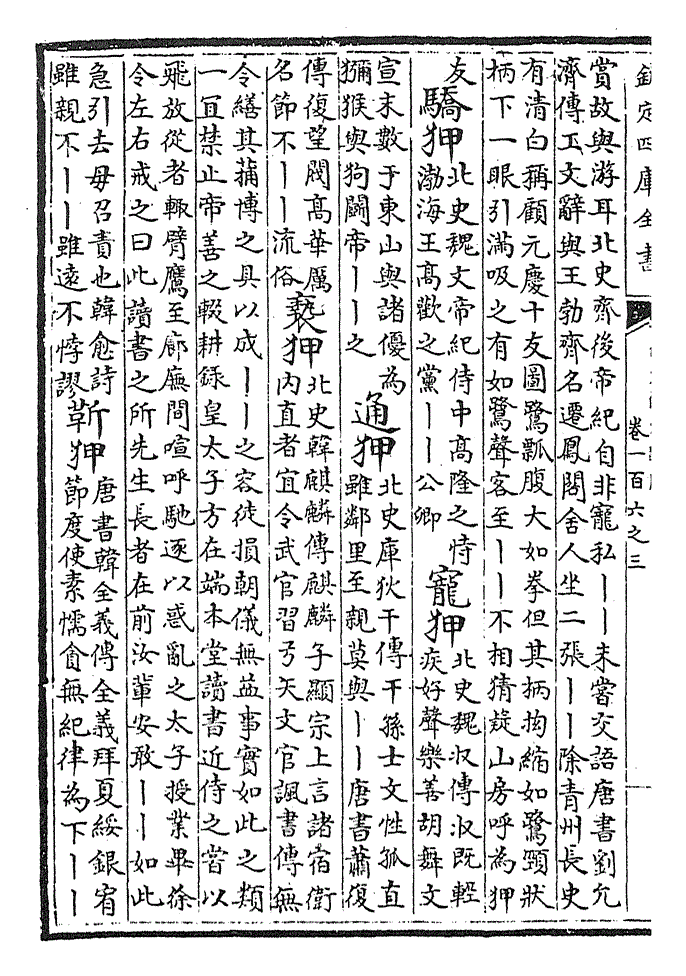 欽定四庫全書
卷一百六之三
賞故與游耳北史齊後帝紀自非寵私丨丨未嘗交語唐書劉允
濟傳工文辭與王勃齊名遷鳳閣舍人坐二張丨丨除青州長史
有清白稱顧元慶十友圖鷺瓢腹大如拳但其柄拘縮如鷺頸狀
柄下一眼引滿吸之有如鷺聲客至丨丨不相猜疑山房呼為狎
友
驕狎
北史魏文帝紀侍中高隆之恃
渤海王高歡之黨丨丨公卿
寵狎
北史魏收傳收既輕
疾好聲樂善胡舞文
宣末數于東山與諸優為
獼猴與狗鬭帝丨丨之
通狎
北史庫狄干傳干孫士文性孤直
雖鄰里至親莫與丨丨唐書蕭復
傳復望閥高華厲
名節不丨丨流俗
褻狎
北史韓麒麟傳麒麟子顯宗上言諸宿衛
內直者宜令武官習弓矢文官諷書傳無
令繕其蒱博之具以成丨丨之容徒損朝儀無益事實如此之類
一宜禁止帝善之輟耕録皇太子方在端本堂讀書近侍之嘗以
飛放從者輒臂鷹至廊廡間喧呼馳逐以惑亂之太子授業畢徐
令左右戒之曰此讀書之所先生長者在前汝輩安敢丨丨如此
急引去毋召責也韓愈詩
雖親不丨丨雖遠不悖謬
靳狎
唐書韓全義傳全義拜夏綏銀宥
節度使素懦貪無紀律為下丨丨